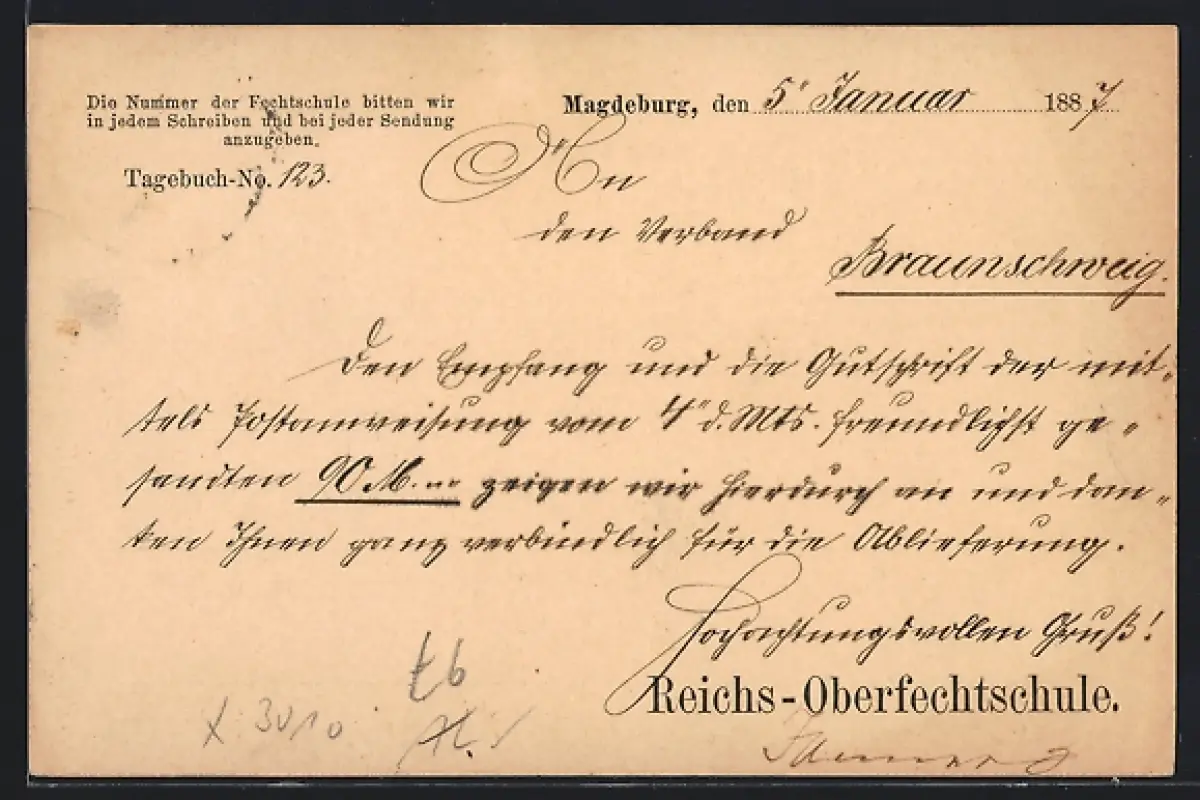 Die Nummer der Fechtschule bitten wir
in jedem Schreiben und bei jeder Sendung
anzugeben.
Tagebuch-No. 123.
Magdeburg, den 5" Januar 1887
An
den Verband
Braunschweig.
Den Empfang und die Gutschrift der mit-
tels Postanweisung vom 4" d. Mts. freundlichst ge-
sandten 90 M. zeigen wir hierdurch an und dan-
ken Ihnen ganz verbindlich für die Ablieferung.
Hochachtungsvollen Gruß!
Reichs-Oberfechtschule.